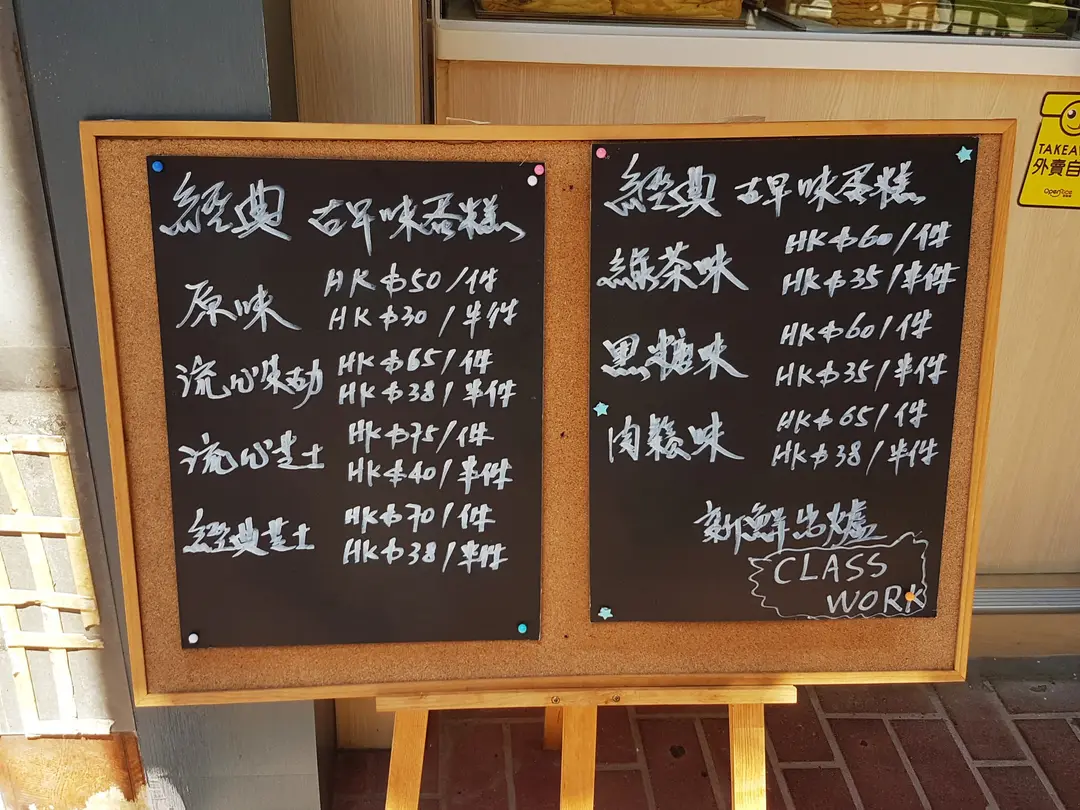 經典 古早味蛋糕
原味 HK$50/件
HK$30/半件
流心朱古力 HK$65/件
HK$38/半件
流心芝士 HK$75/件
HK$40/半件
經典芝士 HK$70/件
HK$38/半件
經典 古早味蛋糕
綠茶味 HK$60/件
HK$35/半件
黑糖味 HK$60/件
HK$35/半件
肉鬆味 HK$65/件
HK$38/半件
新鮮出爐
CLASS
WORK
TAKEA
外賣自
OpenRice